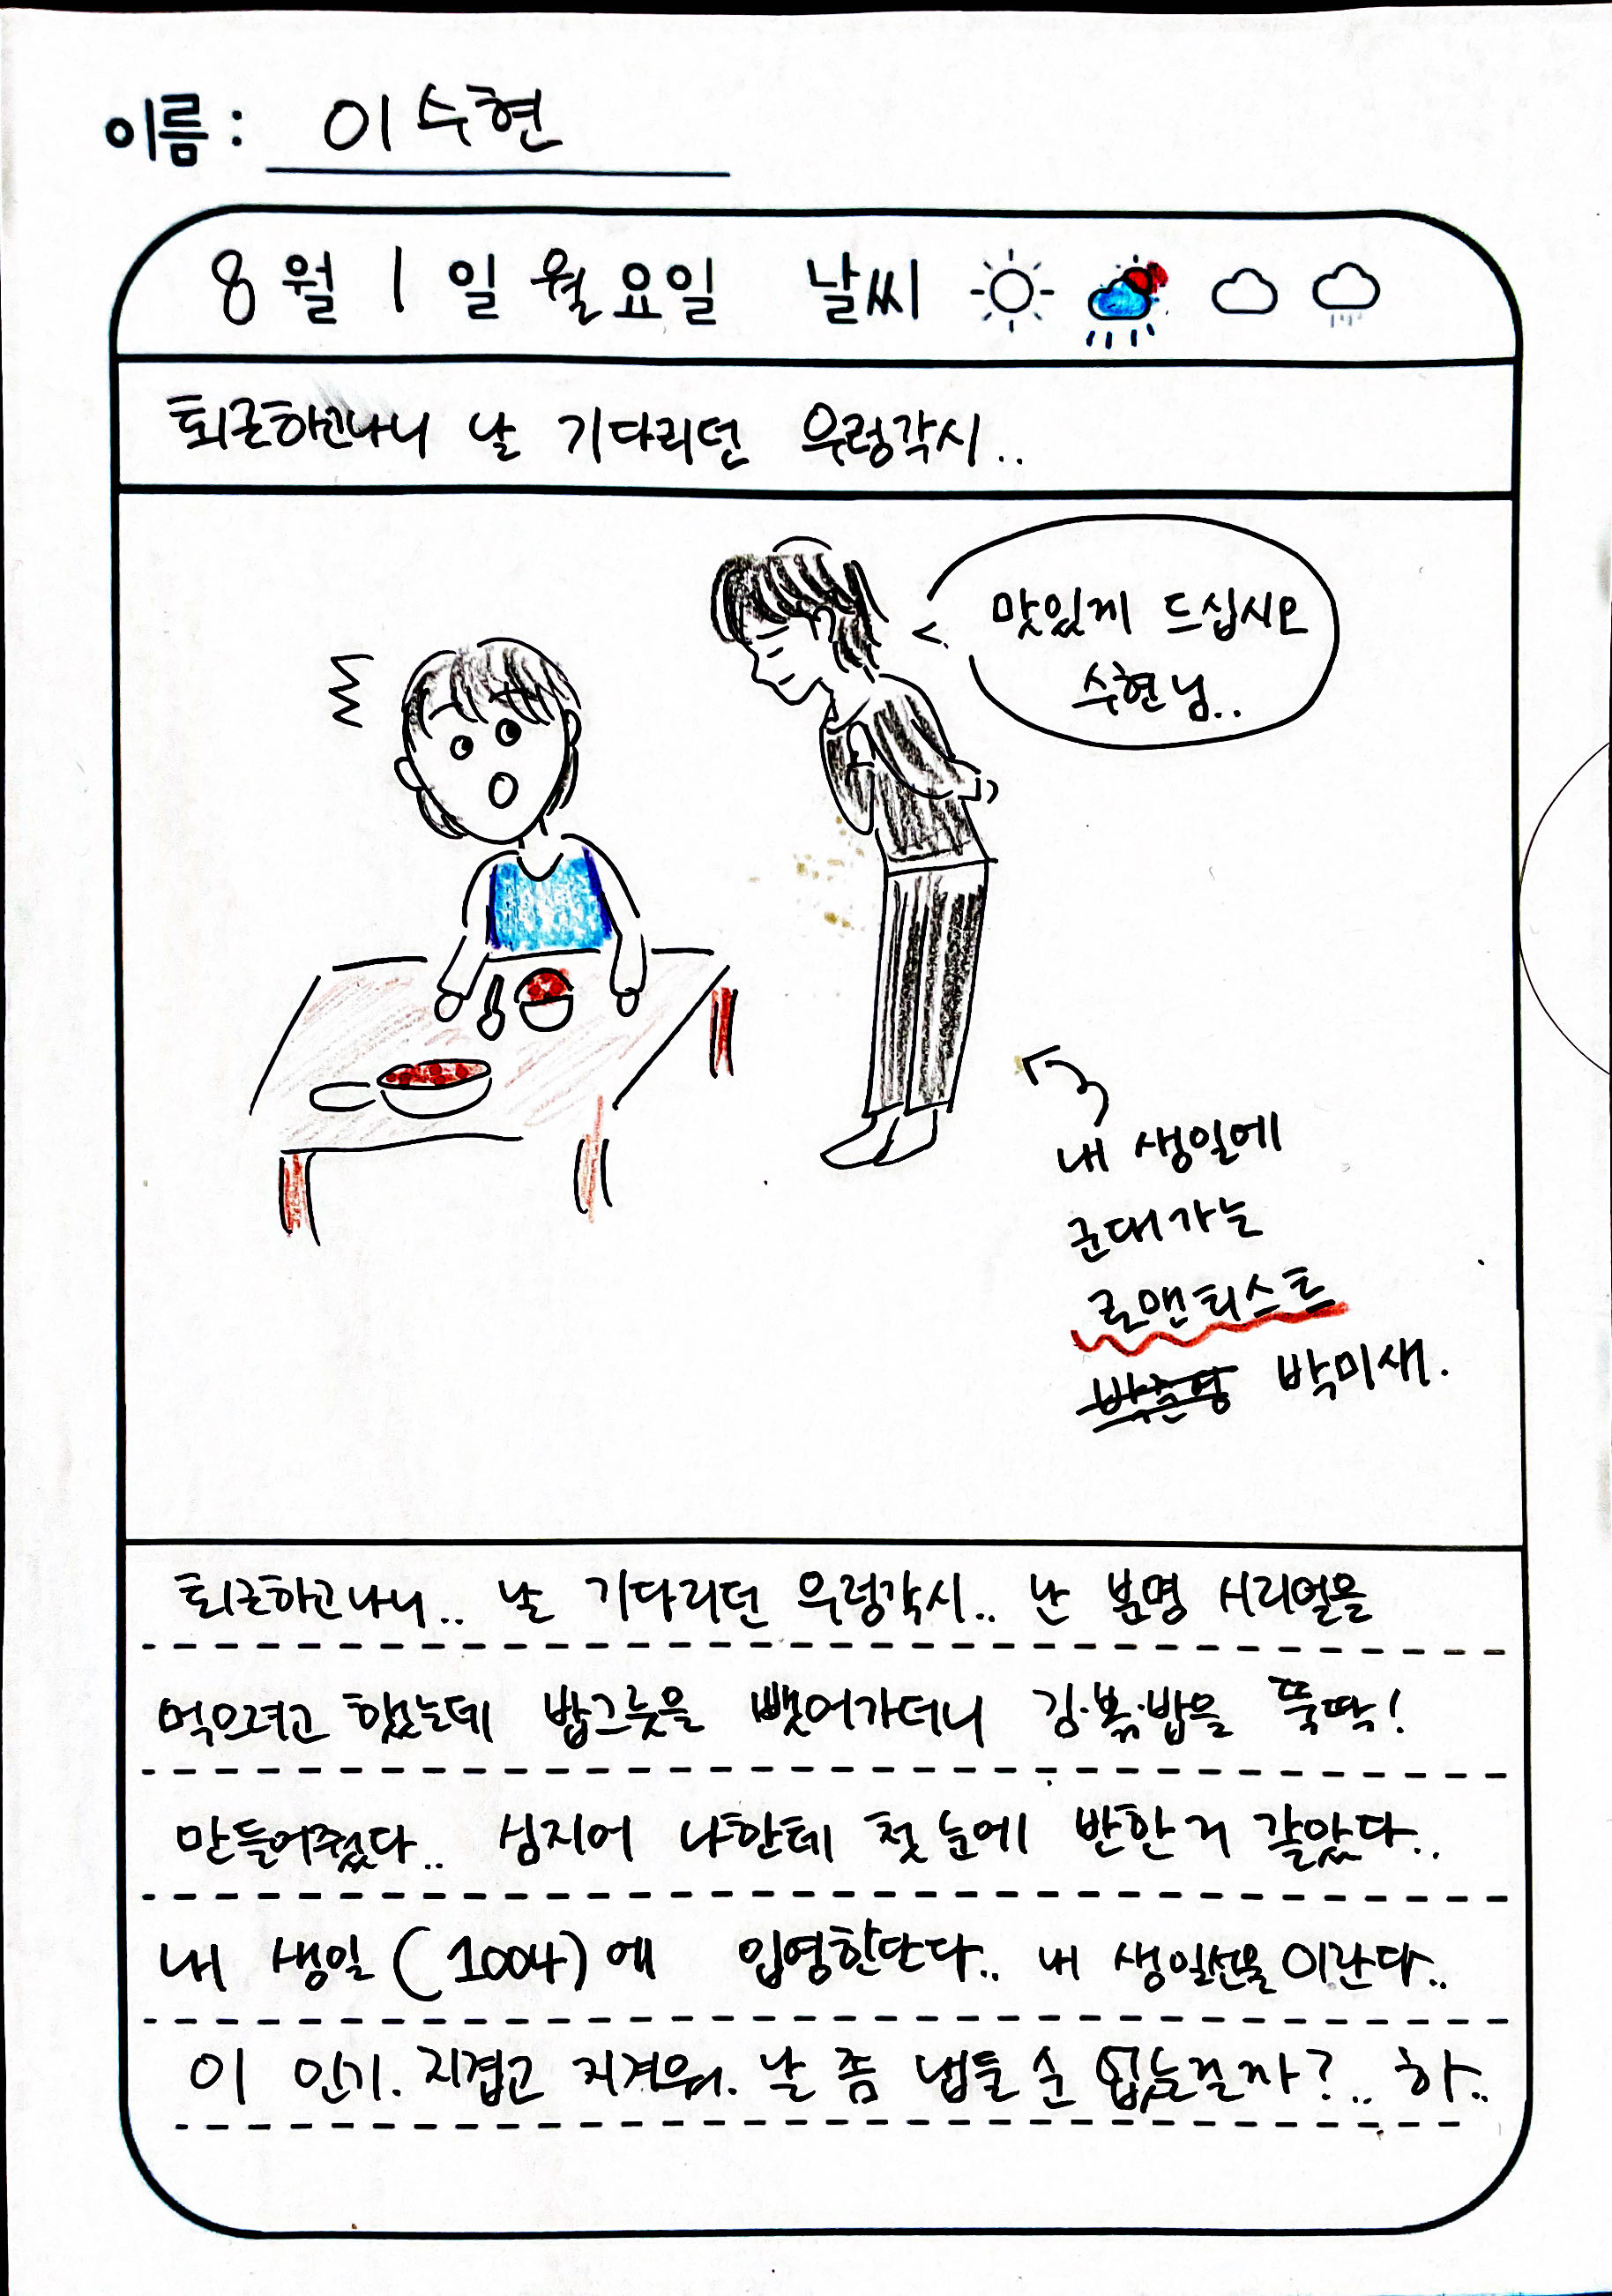 이름: 이수현
8월 1일 월요일 날씨
퇴근하고나니 날 기다리던 우렁각시..
맛있게 드십시오
수현님..
내 생일에
군대가는
로맨티스트
박미새.
퇴근하고나니.. 날 기다리던 우렁각시.. 난 분명 시리얼을
먹으려고 했는데 밥그릇을 뺏어가더니 김·볶·밥을 뚝딱!
만들어줬다.. 심지어 나한테 첫눈에 반한거 같았다..
내 생일(1004)에 입영한단다.. 내 생일선물이란다..
이 인기. 지겹고 지겨워. 날 좀 냅둘 순 없는걸까?.. 하..